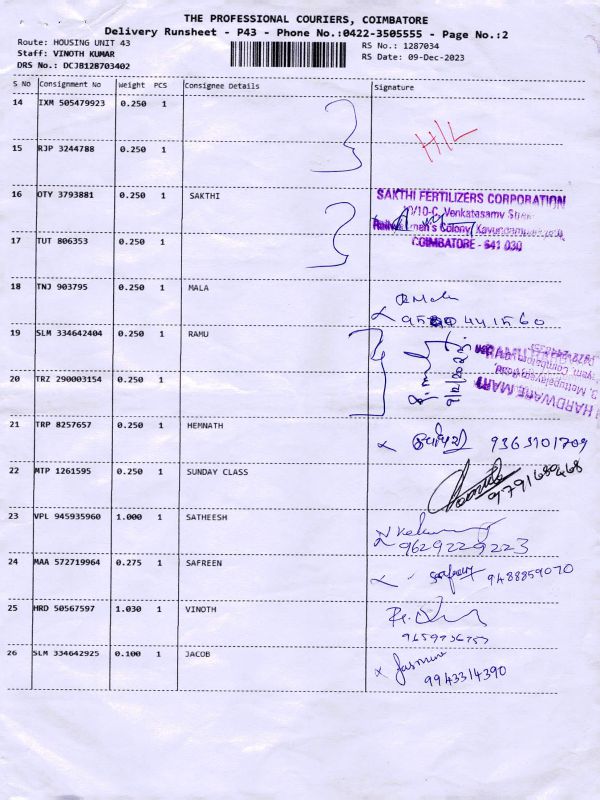 THE PROFESSIONAL COURIERS, COIMBATORE
Delivery Runsheet - P43 - Phone No.:0422-3505555 - Page No.:2
Route: HOUSING UNIT 43
Staff: VINOTH KUMAR
DRS No.: DCJB128703402
RS No.: 1287034
RS Date: 09-Dec-2023
S No Consignment No Weight PCS Consignee Details Signature
14 IXM 505479923 0.250 1 H/L
15 RJP 3244788 0.250 1
16 OTY 3793881 0.250 1 SAKTHI
SAKTHI FERTILIZERS CORPORATION
10/10-C, Venkatasamy
Colony
COIMBATORE - 641 030
17 TUT 806353 0.250 1
18 TNJ 903795 0.250 1 MALA
19 SLM 334642404 0.250 1 RAMU
9/12/2023
HARDWARE MART
20 TRZ 290003154 0.250 1
21 TRP 8257657 0.250 1 HEMNATH 9363101709
22 MTP 1261595 0.250 1 SUNDAY CLASS 9791689468
23 VPL 945935960 1.000 1 SATHEESH 9629229223
24 MAA 572719964 0.275 1 SAFREEN 9488859070
25 HRD 50567597 1.030 1 VINOTH
26 SLM 334642925 0.100 1 JACOB Jasmine 9943314390